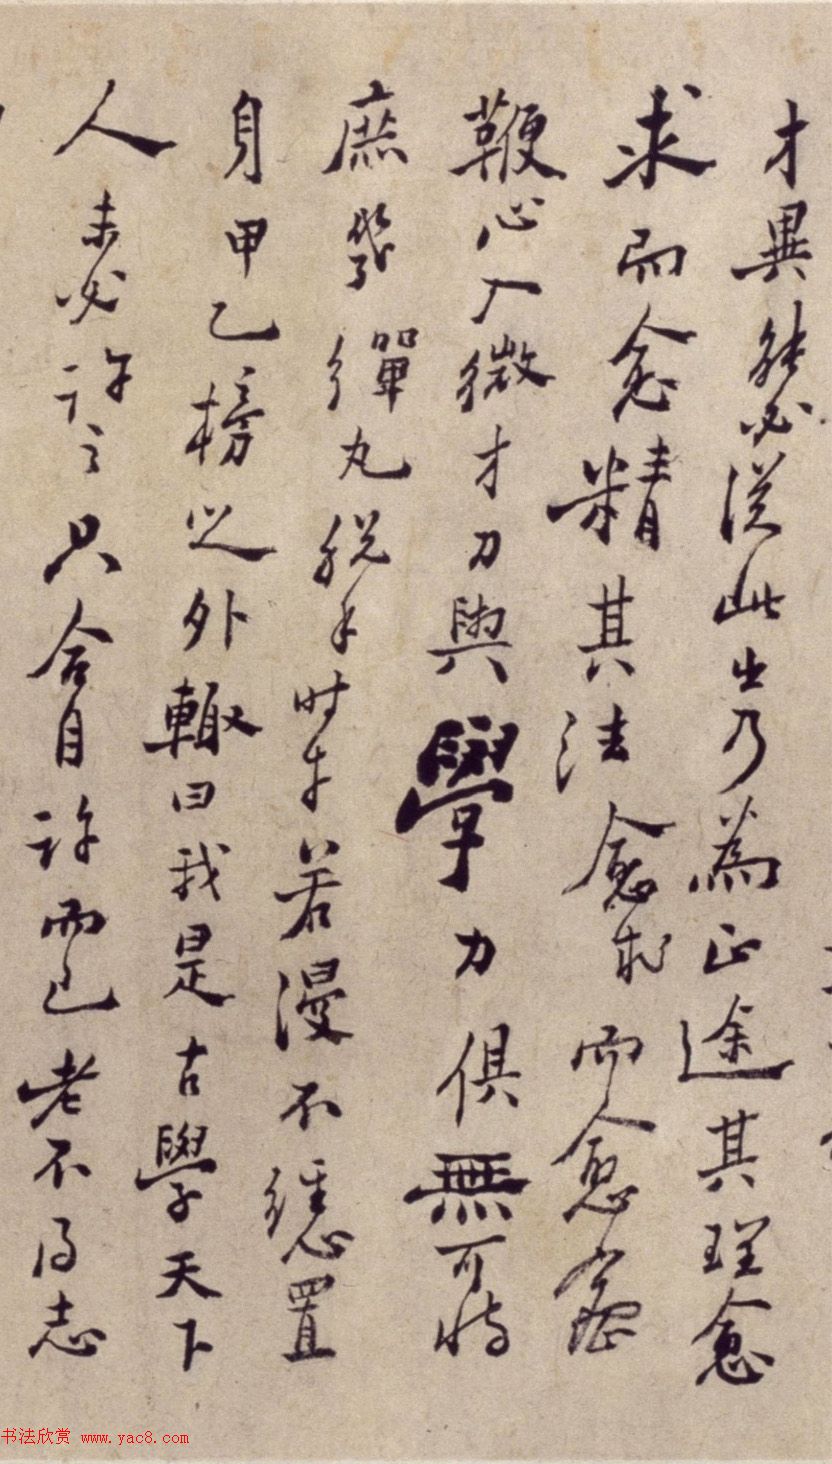 才異能必從此出乃為正途其理愈
求而愈精其法愈求而愈密
鞭心入微才力與學力俱無可恃
庶幾彈丸脫手時乎若漫不經心置
身甲乙榜之外輒曰我是古學天下
人未必許之只合自許而已老不得志
书法欣赏 www.yac8.com